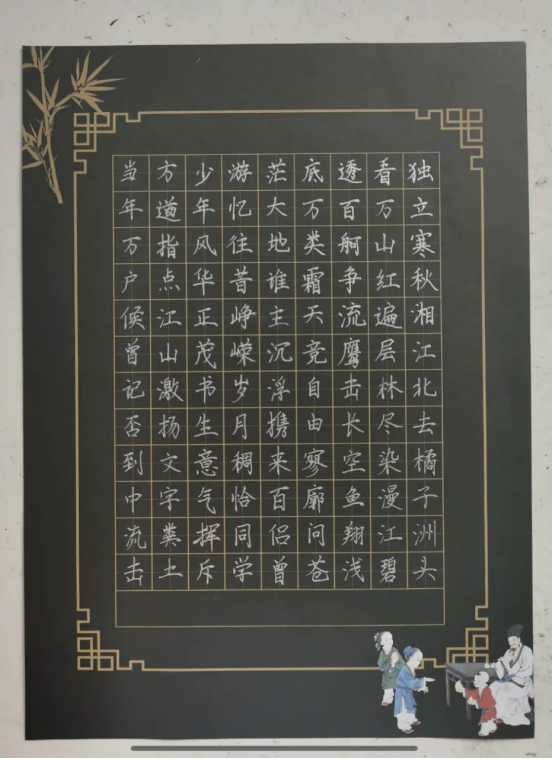 独立寒秋湘江北去橘子洲头
看万山红遍层林尽染漫江碧
透百舸争流鹰击长空鱼翔浅
底万类霜天竞自由寥廓问苍
茫大地谁主沉浮携来百侣曾
游忆往昔峥嵘岁月稠恰同学
少年风华正茂书生意气挥斥
方遒指点江山激扬文字粪土
当年万户侯曾记否到中流击